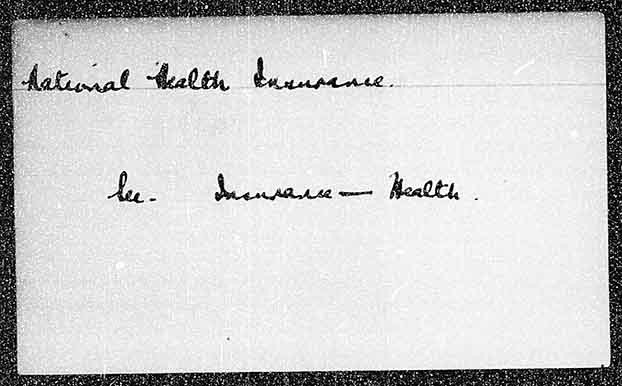 National Health Insurance.
See. Insurance — Health.